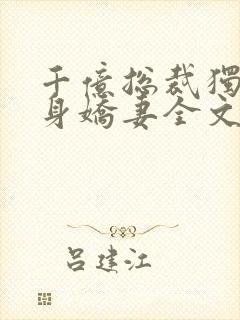 千億總裁獨
身嬌妻全文
呂建江